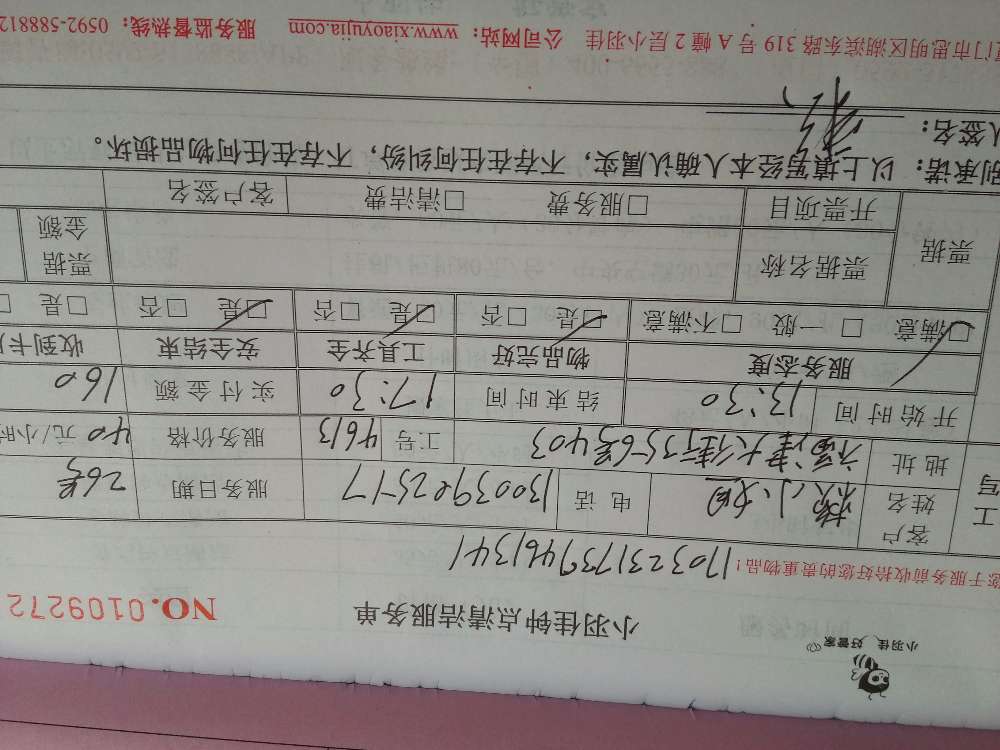 小羽佳 好管家
小羽佳钟点清洁服务单 NO.0109272
您于服务前收拾好您的贵重物品! 1703231739461341
客户姓名 电话 13003902517 服务日期 26号
地址 福津大街356号403 工号 4613 服务价格 40 元/小时
开始时间 13:30 结束时间 17:30 实付金额 160
服务态度 物品完好 工具齐全 安全结束 收到卡
☑满意 □一般 □不满意 ☑是 □否 ☑是 □否 ☑是 □否 □是 □
票据 票据名称 票据金额
开票项目 □服务费 □清洁费 客户签名
别承诺：以上填写经本人确认属实，不存在任何纠纷，不存在任何物品损坏。
人签名：
门市思明区湖滨东路 319 号 A 幢 2 层小羽佳 公司网站：www.xiaoyujia.com 服务监督热线：0592-588812